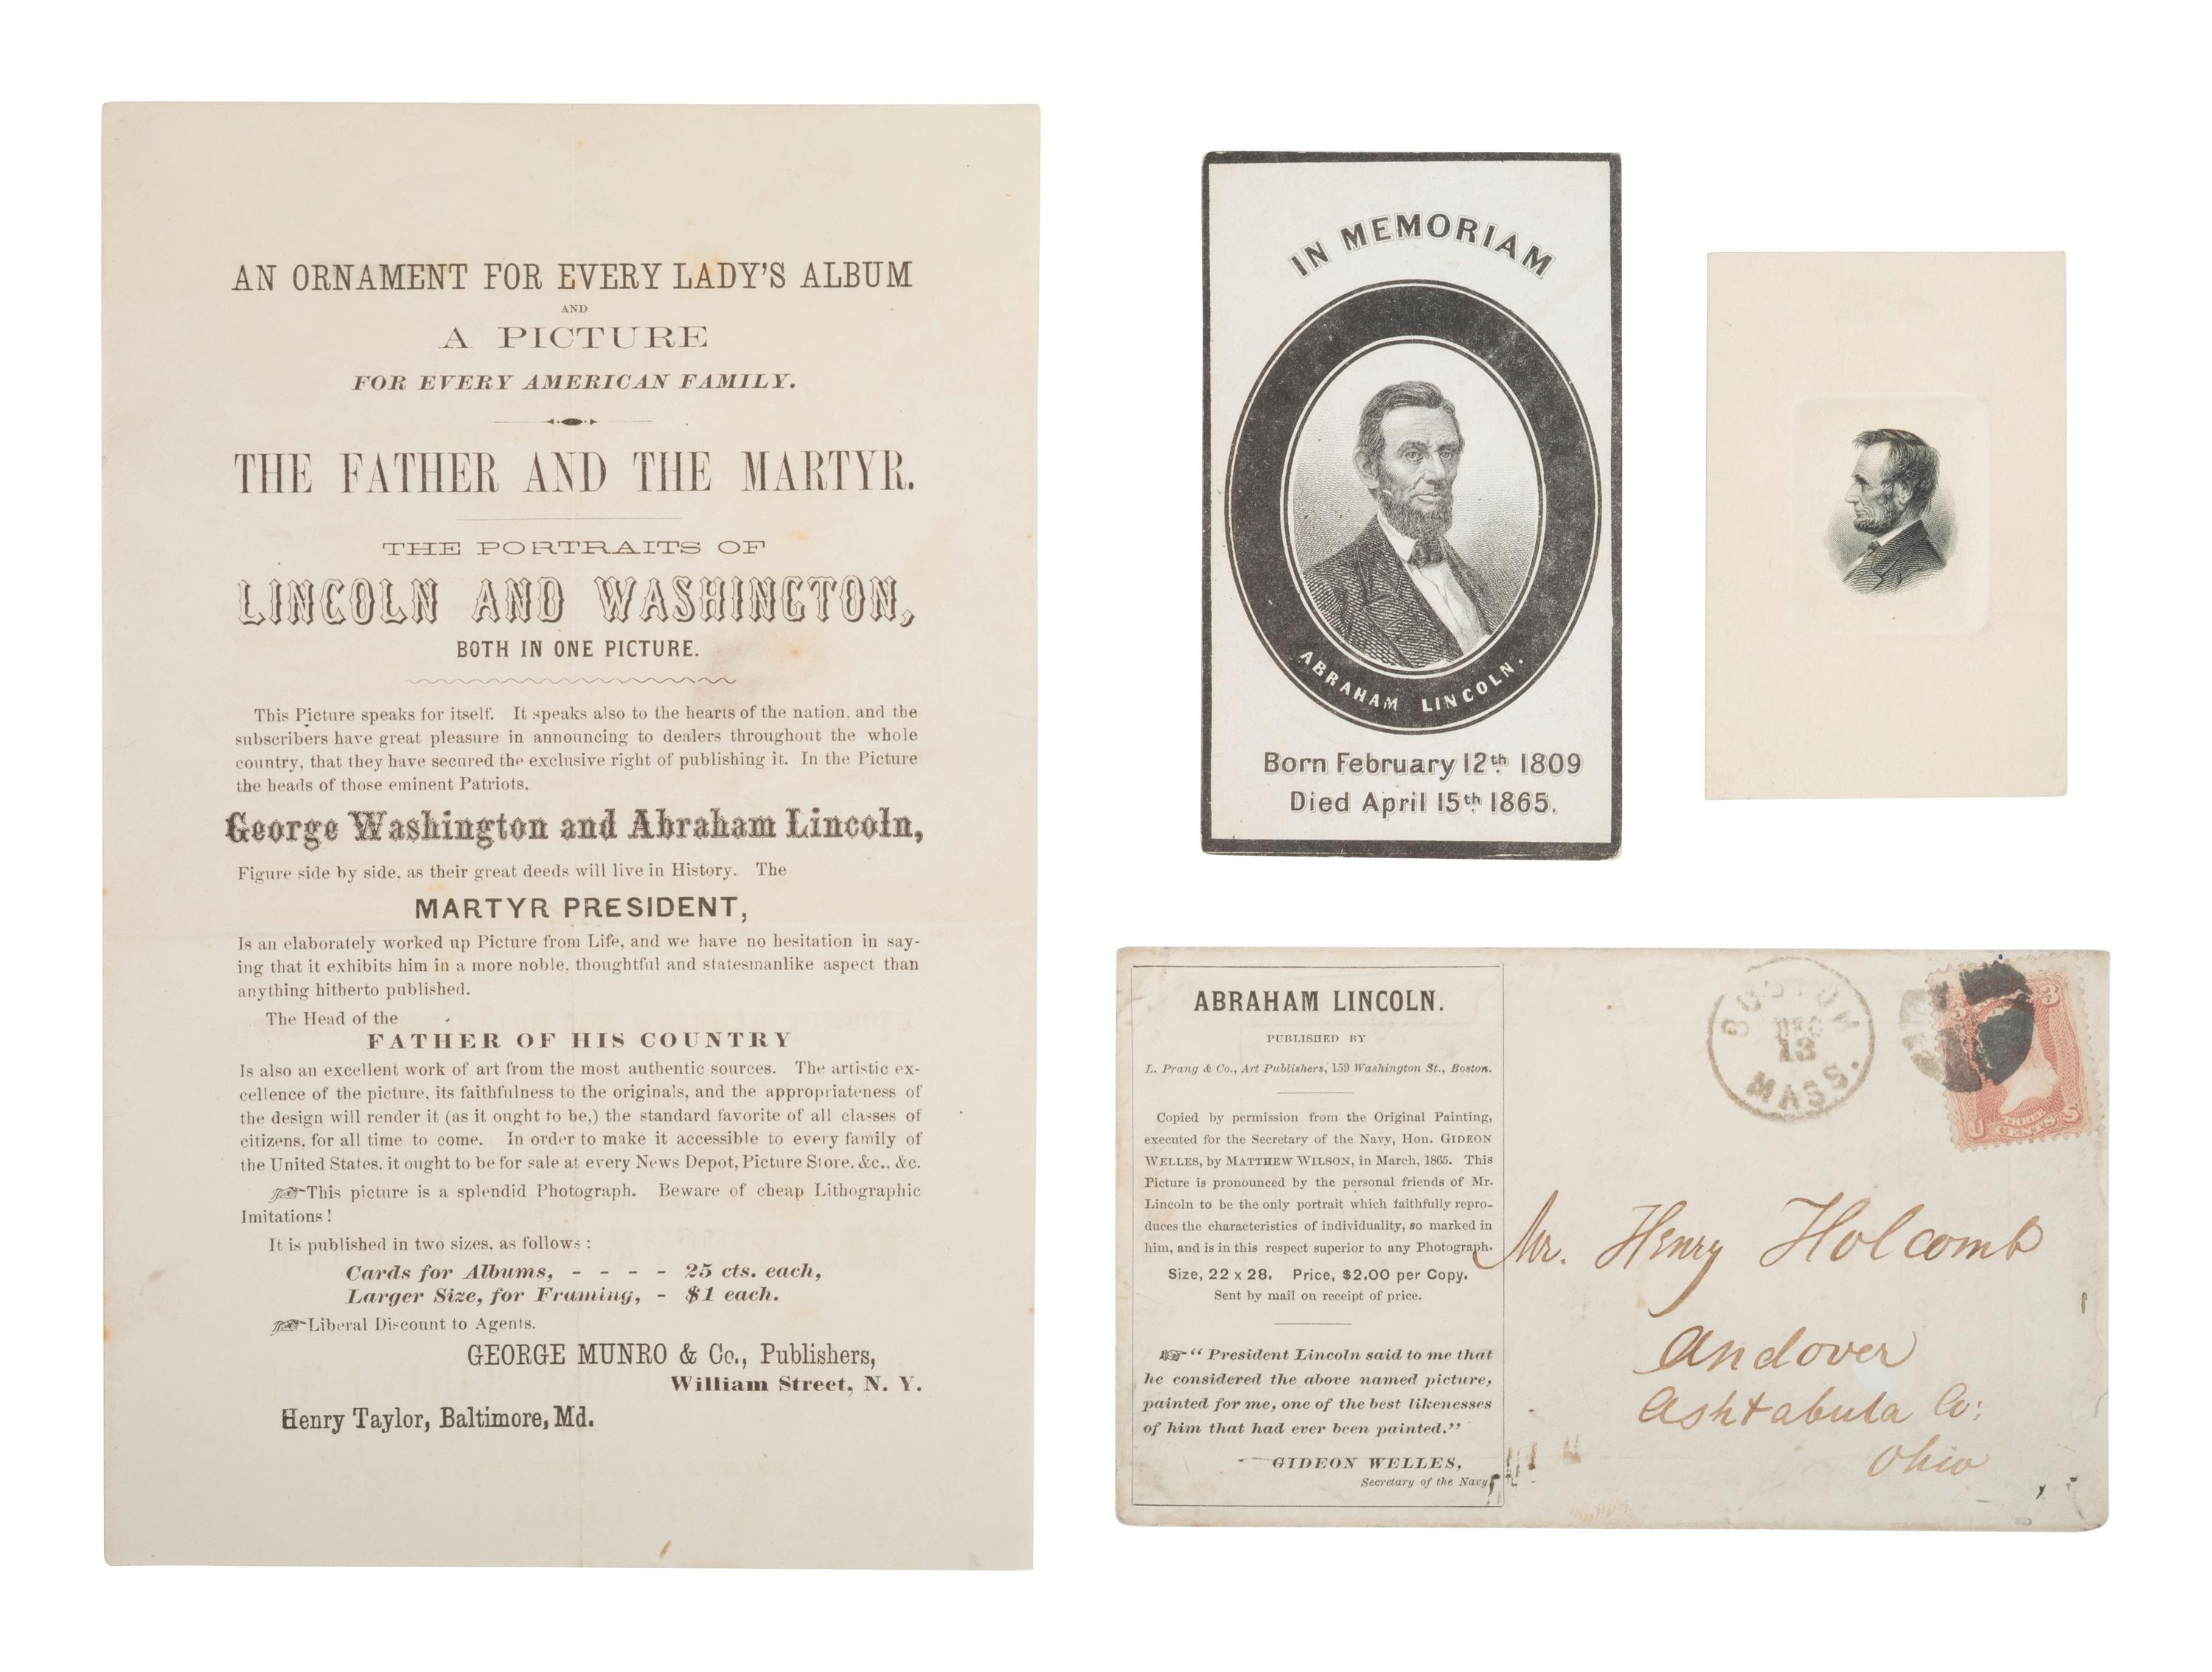 AN ORNAMENT FOR EVERY LADY'S ALBUM
AND
A PICTURE
FOR EVERY AMERICAN FAMILY.
THE FATHER AND THE MARTYR.
THE PORTRAITS OF
LINCOLN AND WASHINGTON,
BOTH IN ONE PICTURE.
This Picture speaks for itself. It speaks also to the hearts of the nation, and the
subscribers have great pleasure in announcing to dealers throughout the whole
country, that they have secured the exclusive right of publishing it. In the Picture
the heads of those eminent Patriots,
George Washington and Abraham Lincoln,
Figure side by side, as their great deeds will live in History. The
MARTYR PRESIDENT,
Is an elaborately worked up Picture from Life, and we have no hesitation in say-
ing that it exhibits him in a more noble, thoughtful and statesmanlike aspect than
anything hitherto published.
The Head of the
FATHER OF HIS COUNTRY
Is also an excellent work of art from the most authentic sources. The artistic ex-
cellence of the picture, its faithfulness to the originals, and the appropriateness of
the design will render it (as it ought to be,) the standard favorite of all classes of
citizens, for all time to come. In order to make it accessible to every family of
the United States, it ought to be for sale at every News Depot, Picture Store, &c., &c.
☞This picture is a splendid Photograph. Beware of cheap Lithographic
Imitations!
It is published in two sizes, as follows:
Cards for Albums, - - - - 25 cts. each,
Larger Size, for Framing, - $1 each.
☞Liberal Discount to Agents.
GEORGE MUNRO & Co., Publishers,
William Street, N. Y.
Henry Taylor, Baltimore, Md.
IN MEMORIAM
ABRAHAM LINCOLN.
Born February 12th 1809
Died April 15th 1865.
ABRAHAM LINCOLN.
PUBLISHED BY
L. Prang & Co., Art Publishers, 159 Washington St., Boston.
Copied by permission from the Original Painting,
executed for the Secretary of the Navy, Hon. GIDEON
WELLES, by MATTHEW WILSON, in March, 1865. This
Picture is pronounced by the personal friends of Mr.
Lincoln to be the only portrait which faithfully repro-
duces the characteristics of individuality, so marked in
him, and is in this respect superior to any Photograph.
Size, 22 x 28. Price, $2.00 per Copy.
Sent by mail on receipt of price.
☞"President Lincoln said to me that
he considered the above named picture,
painted for me, one of the best likenesses
of him that had ever been painted."
GIDEON WELLES,
Secretary of the Navy
BOSTON
DEC
13
MASS.
3
U S
THREE
CENTS
Mr. Henry Holcomb
Andover
Ashtabula Co:
Ohio